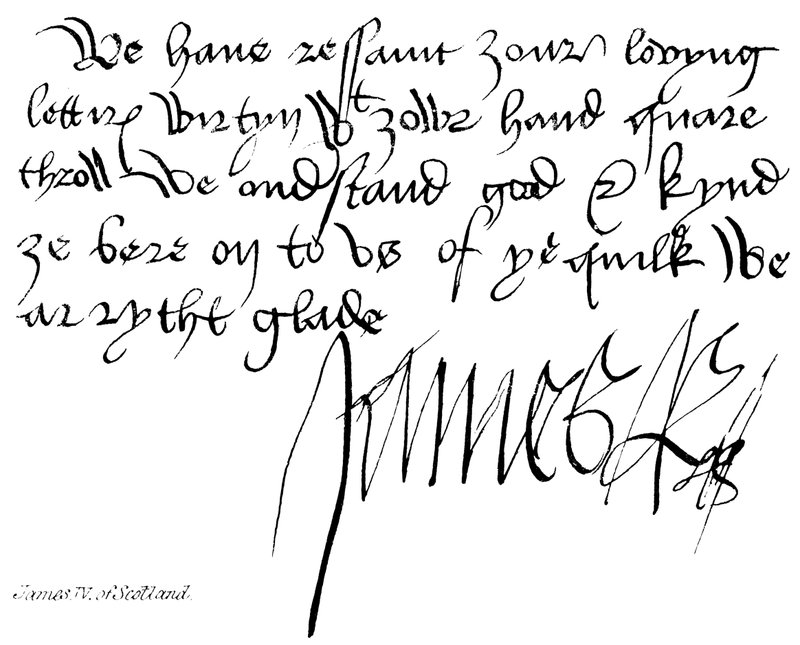 We haue ressauit zour lovyng
lettir wirtyn wt zowr hand quare
throw We ondstand gud & kynd
ze bere on to vs of ye quilk We
ar ryght glade
James R
James IV. of Scotland.